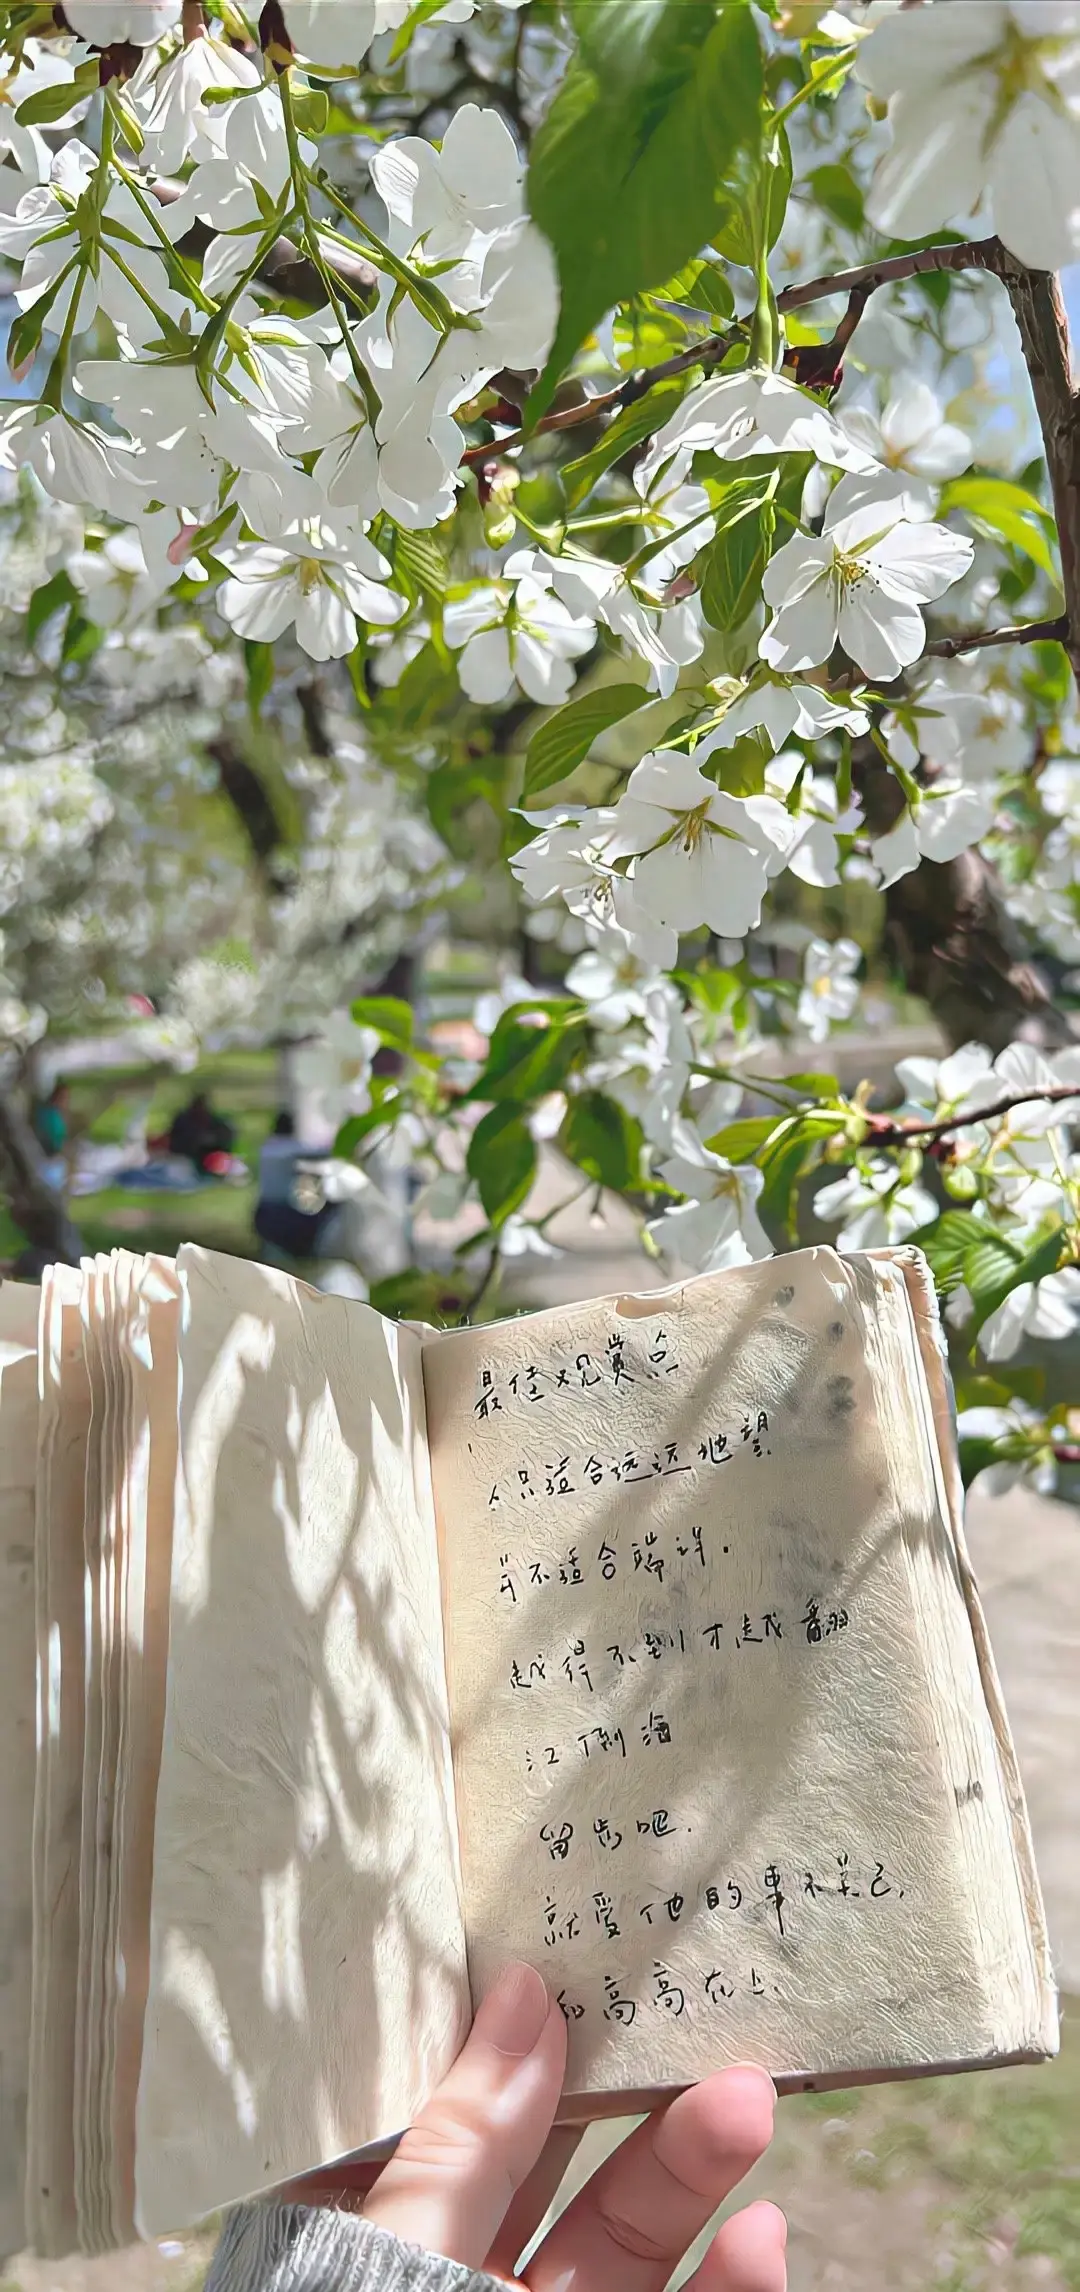 最佳观赏点
人只适合远远地望
并不适合端详.
越得不到才越翻
江倒海
留步吧.
就爱他的事不关己,
和高高在上.